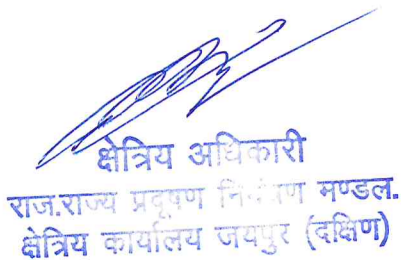 क्षेत्रिय अधिकारी
राज.राज्य प्रदूषण नियंत्रण मण्डल.
क्षेत्रिय कार्यालय जयपुर (दक्षिण)